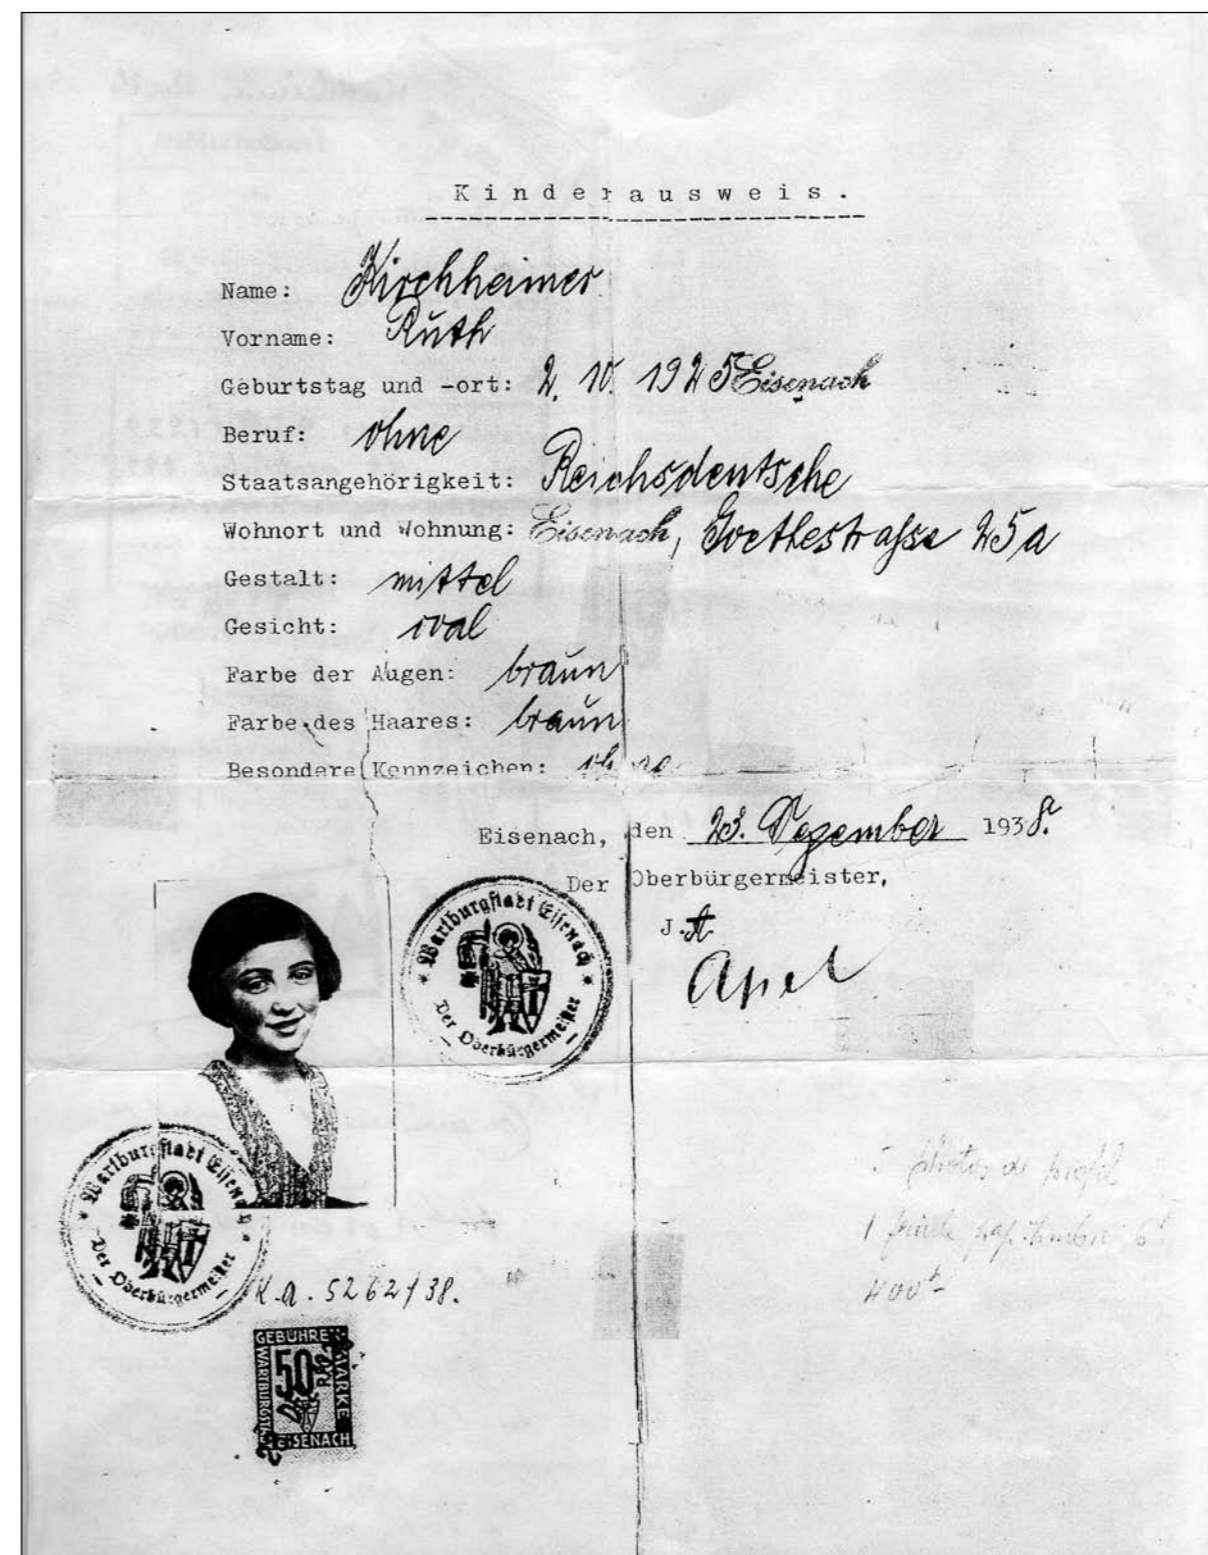 Kinderausweis.
Name: Kirchheimer
Vorname: Ruth
Geburtstag und -ort: 2. 10. 1925 Eisenach
Beruf: ohne
Staatsangehörigkeit: Reichsdeutsche
Wohnort und Wohnung: Eisenach, Goethestrasse 25a
Gestalt: mittel
Gesicht: oval
Farbe der Augen: braun
Farbe des Haares: braun
Besondere Kennzeichen: ohne
Eisenach, den 23. Dezember 1938.
Der Oberbürgermeister,
J.A.
Apel
* Wartburgstadt Eisenach *
Der Oberbürgermeister
* Wartburgstadt Eisenach *
Der Oberbürgermeister
5 photos de profil
1 pap. timbre 6
400
K.a. 5262/38.
GEBÜHRENMARKE
50 RPF
WARTBURGSTADT
EISENACH